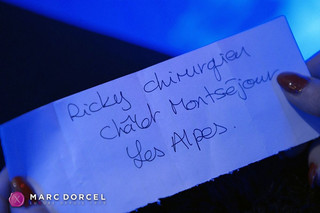 Ricky chirurgien
Châlet Montséjour
Les Alpes.
MARC DORCEL